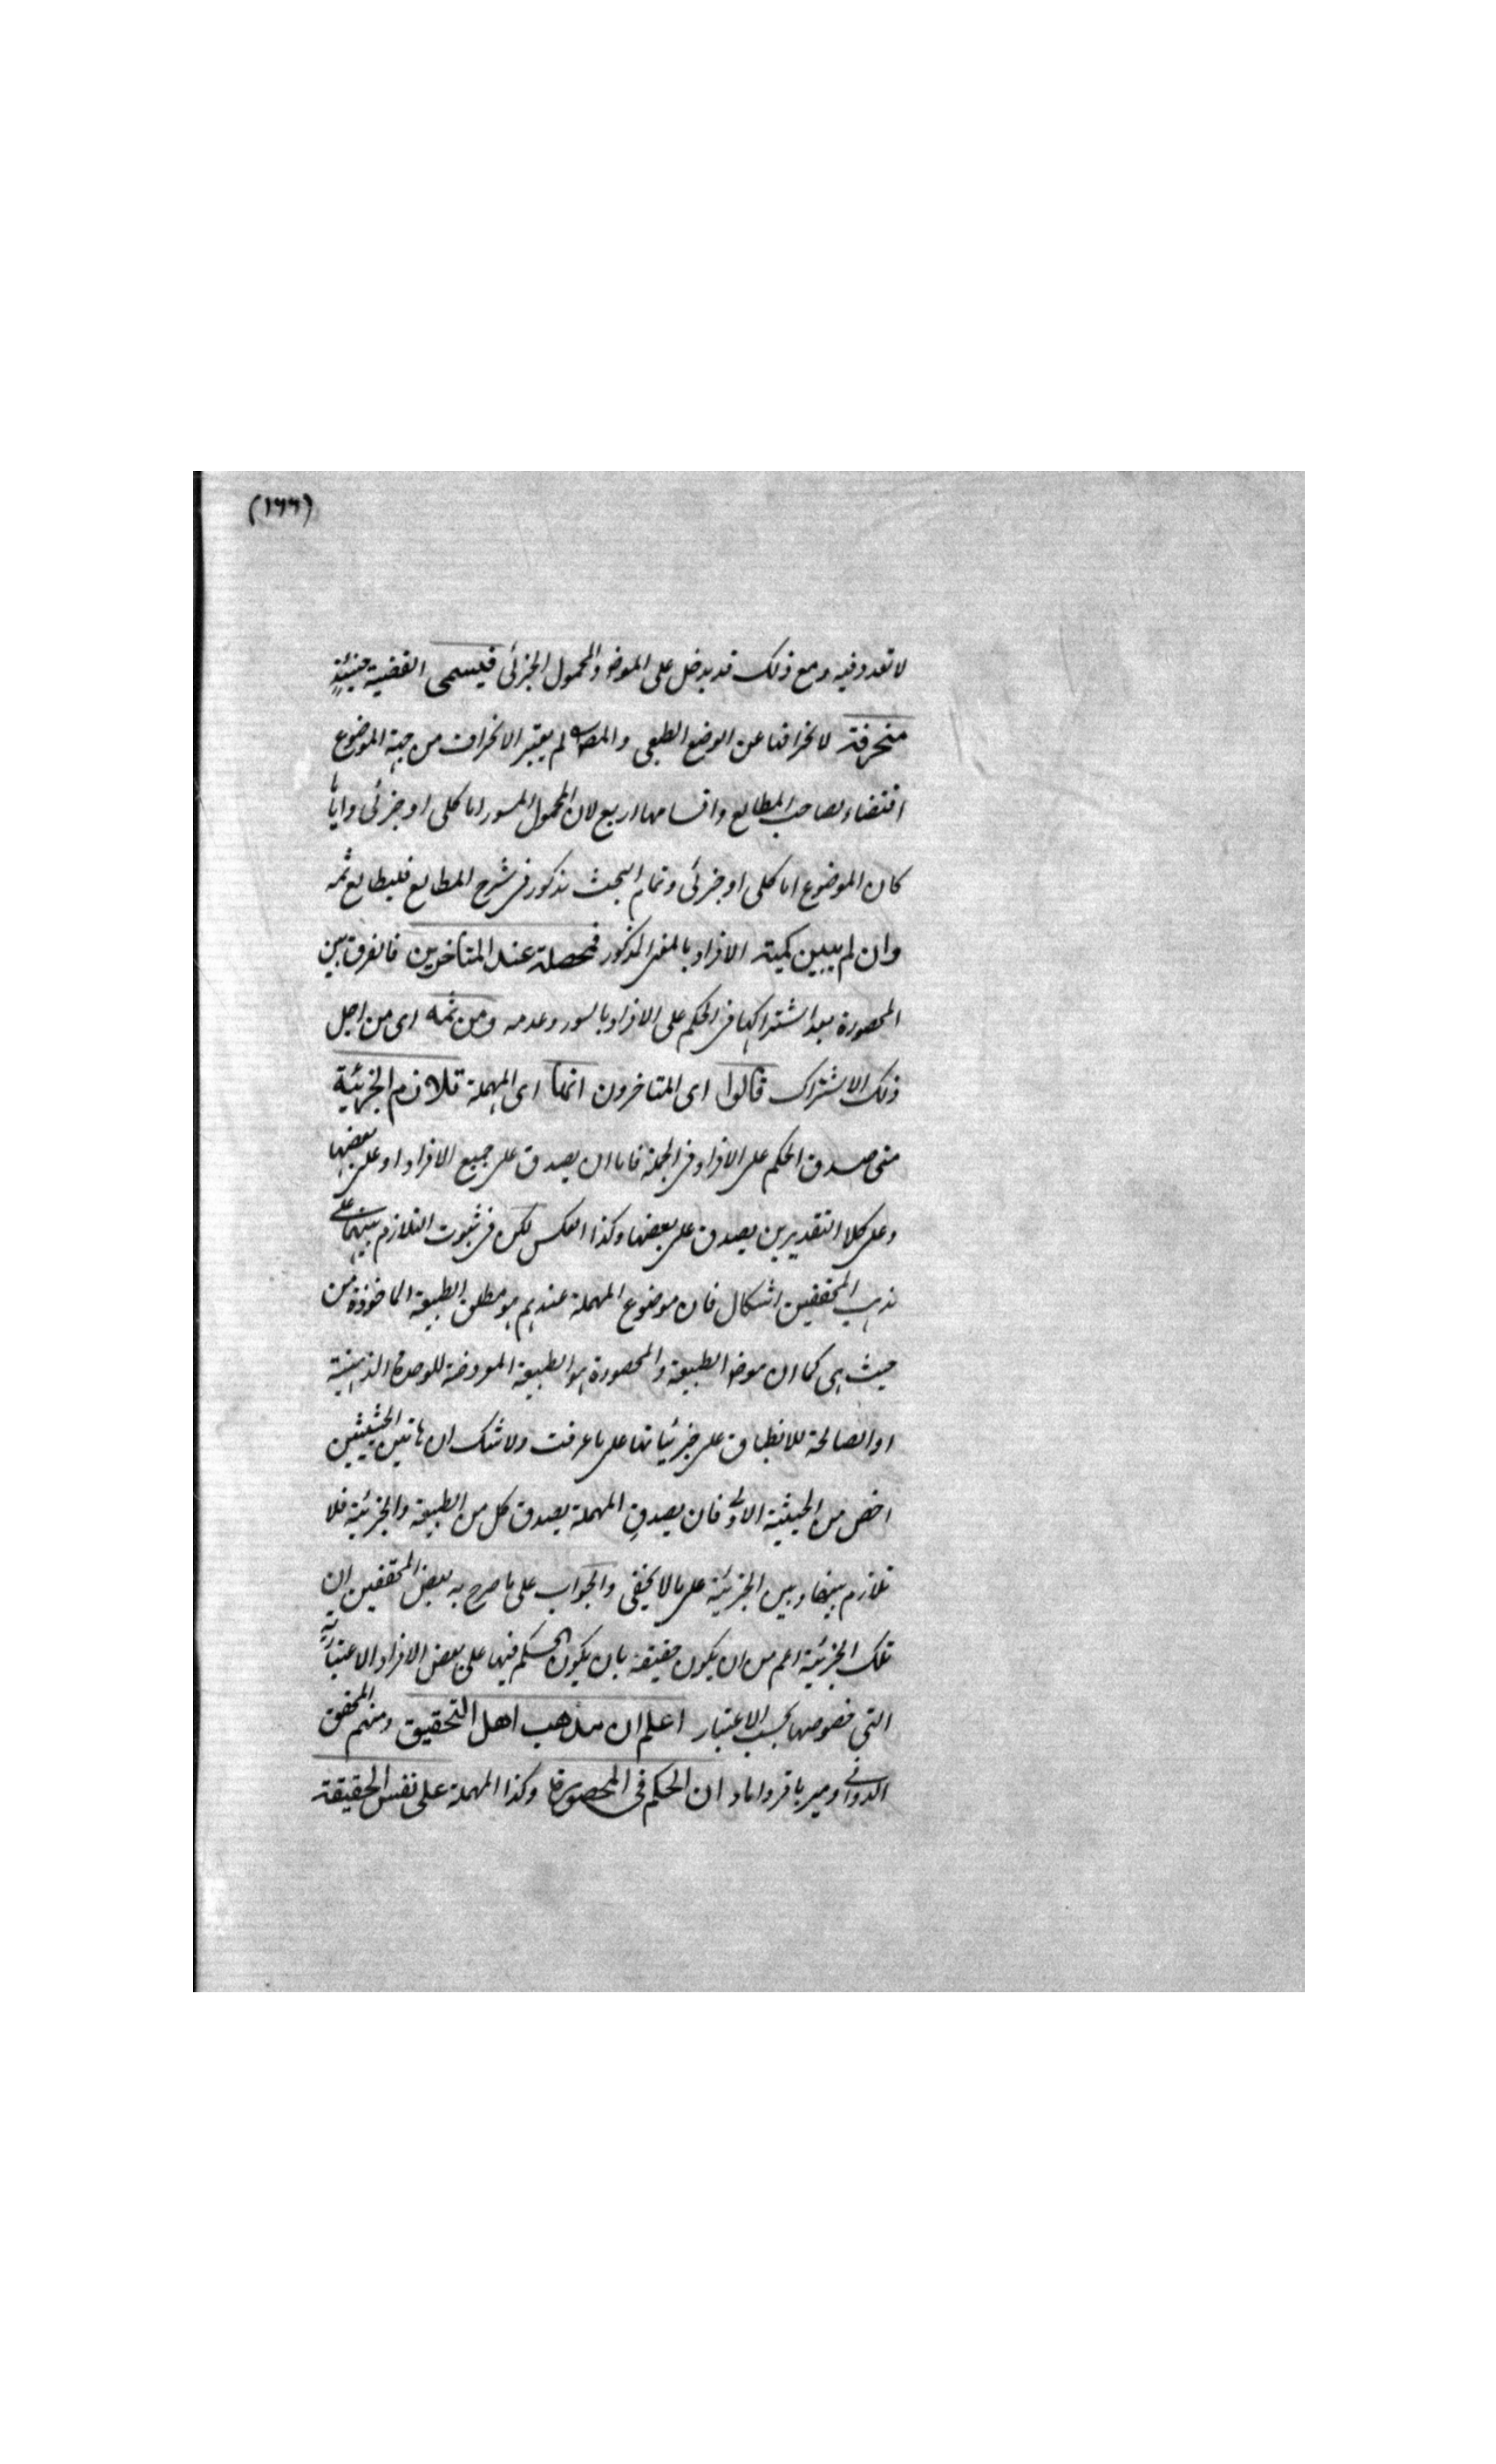 (١٦٦)
لا تعدد فيه ومع ذلك قد يدخل على الموضو والمحمول الجزئى فيسمى القضية حينئذٍ
منحرفة لانحرافها عن الوضع الطبعى والمص لم يعتبر الانحراف من جهة الموضوع
اقتضاء لصاحب المطالع واقسامها اربع لان المحمول المسور اما كلى او جزئى واياما
كان الموضوع اما كلى او جزئى وتمام البحث مذكور فى شرح المطالع فليطالع ثمه
وان لم يبين كمية الافراد بالمعنى المذكور فمهملة عند المتأخرين فالفرق بين
المحصورة بعد اشتراكها فى الحكم على الافراد بالسور وعدمه ومن ثمه اى من اجل
ذلك الاشتراك قالوا اى المتاخرون انها اى المهملة تلازم الجزئية
متى صدق الحكم على الافراد فى الجملة فاما ان يصدق على جميع الافراد او على بعضها
وعلى كلا التقديرين يصدق على بعضها وكذا العكس لكن فى ثبوت التلازم بينهما على
مذهب المحققين اشكال فان موضوع المهملة عندهم هو مطلق الطبيعة الماخوذة من
حيث هى كما ان موضو الطبيعة والمحصورة هو الطبيعة المعروضة للوحدة الذهنية
او الصالحة للانطباق على جزئياتها على ما عرفت ولا شك ان هاتين الحيثيتين
اخص من الحيثية الاولى فان بصدق المهملة يصدق كل من الطبيعة والجزئية فلا
تلازم بينها وبين الجزئية على ما لا يخفى والجواب على ما صرح به بعض المحققين ان
تلك الجزئية اعم من ان يكون حقيقة بان يكون الحكم فيها على بعض الافراد الاعتبارية
التى خصوصها بحسب الاعتبار اعلم ان مذهب اهل التحقيق ومنهم المحقق
الدوانى ومير باقر داماد ان الحكم فى المحصورة وكذا المهملة على نفس الحقيقة